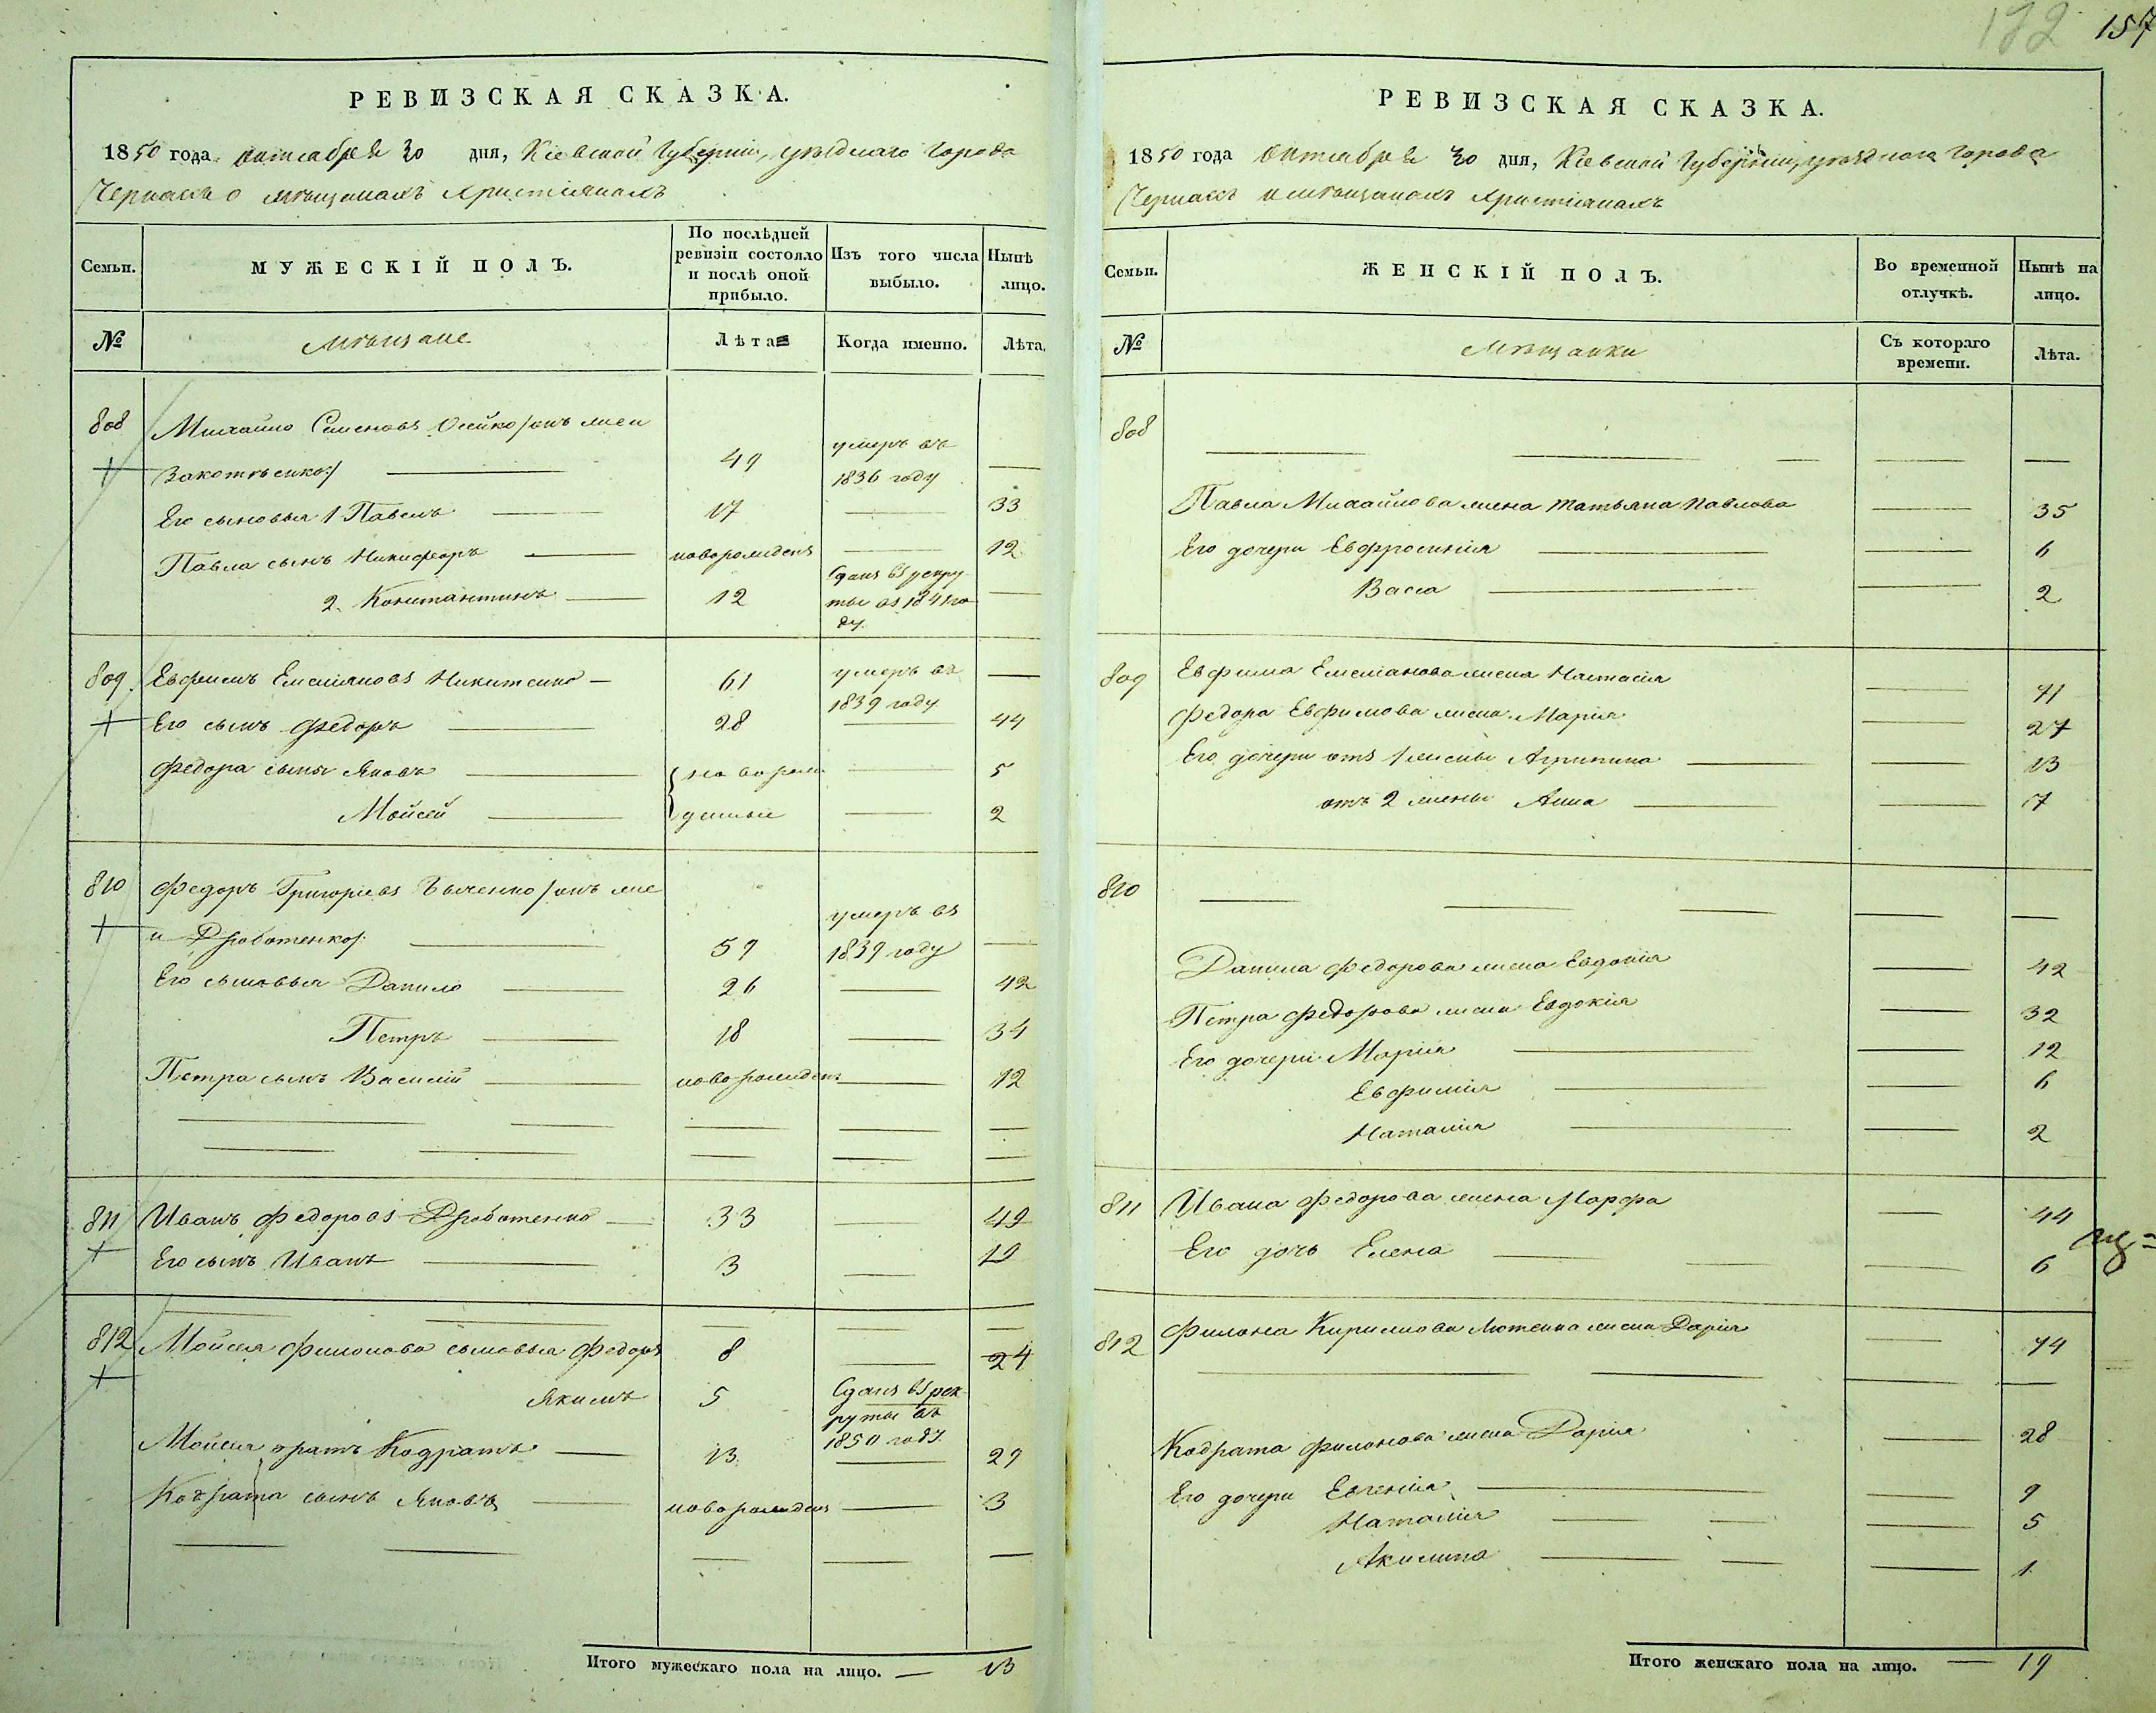 172 157
РЕВИЗСКАЯ СКАЗКА.
1850 года октября 30 дня, Кіевской Губерніи, уѣзднаго города
Черкасъ о мѣщанахъ христіянахъ
Семьи.
МУЖЕСКІЙ ПОЛЪ.
По послѣдней ревизіи состояло и послѣ оной прибыло.
Изъ того числа выбыло.
Нынѣ лицо.
№
мѣщане
Лѣта
Когда именно.
Лѣта.
808 Михайло Семеновъ Осейко /онъ же и
Закотѣенко/ 49 умеръ въ 1836 году
Его сыновья 1 Павелъ 17 33
Павла сынъ Никифоръ новорожденъ 12
2. Константинъ 12 Сданъ въ рекруты въ 1841 году
809. Евфимъ Емелiяновъ Никитенко 61 умеръ въ 1839 году
Его сынъ Федоръ 28 44
Федора сынъ Яковъ новорож 5
Мойсей денные 2
810 Федоръ Григорьевъ /онъ же
и Дроботенко/ 59 умеръ въ 1839 году
Его сыновья Данило 26 42
Петръ 18 34
Петра сынъ Василій новорожденъ 12
811 Иванъ Федоровъ Дроботенко 33 49
Его сынъ Иванъ 3 19
812 Мойсея Филонова сыновья Федоръ 8 24
Якимъ 5 Сданъ въ рекруты въ 1850 году
Мойсея братъ Кодратъ 13 29
Кодрата сынъ Яковъ новорожденъ 3
Итого мужескаго пола на лицо. — 13
РЕВИЗСКАЯ СКАЗКА.
1850 года Октября 30 дня, Кіевской Губерніи, уѣзднаго города
Черкасъ о мѣщанахъ христіянахъ
Семьи.
ЖЕНСКІЙ ПОЛЪ.
Во временной отлучкѣ.
Нынѣ на лицо.
№
Мѣщанки
Съ котораго времени.
Лѣта.
808
Павла Михайлова жена Татьяна Павлова 35
Его дочери Евфросинія 6
Васса 2
809 Евфима Емелiанова жена Настасія 71
Федора Евфимова жена Марія 27
Его дочери отъ 1 жены Агрипина 13
отъ 2 жены Анна 7
810
Данила Федорова жена Евдокія 42
Петра Федорова жена Евдокія 32
Его дочери Марія 12
Евфимія 6
Наталія 2
811 Ивана Федорова жена Марфа 44
Его дочь Елена 6
812 Филона Кирилова жена Дарія 74
Кодрата Филонова жена Дарія 28
Его дочери Евгенія 9
Наталія 5
Акилина 1
Итого женскаго пола на лицо. — 19